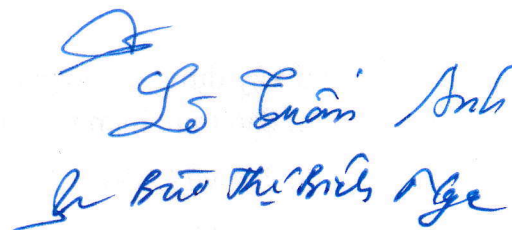 Lê Tuấn Anh
Bùi Thị Bích Nga